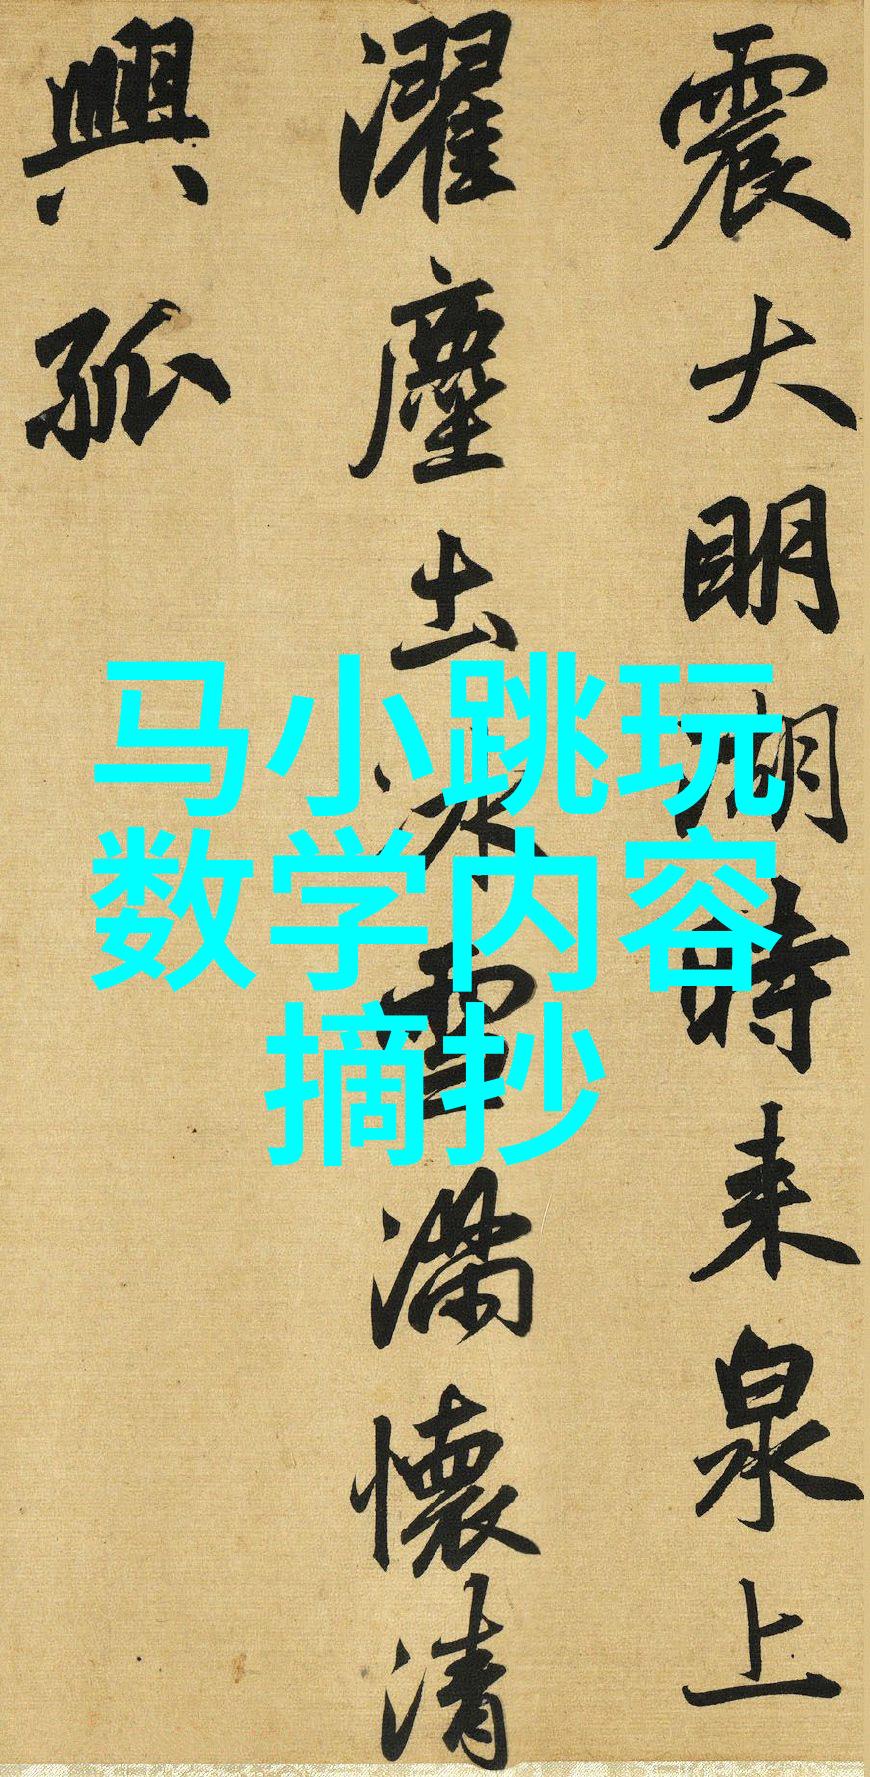 震大明湖時来泉上
濯塵土冰雪满懷清
興孤
马小跳玩
数学内容
摘抄